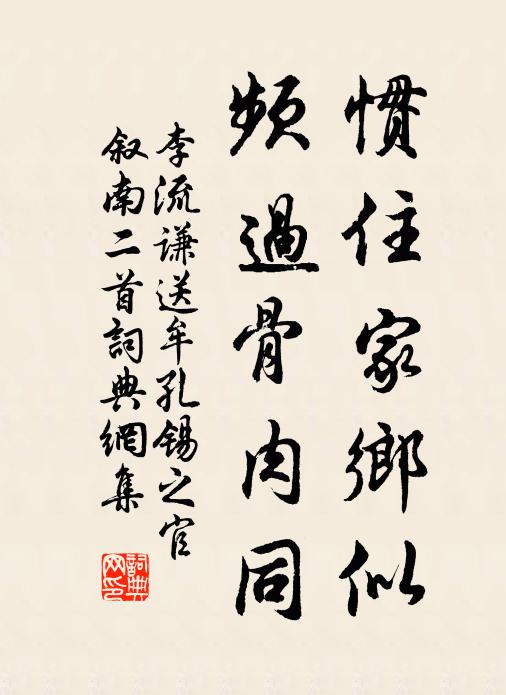 慣住家鄉似
頻過骨肉同
李流謙送牟孔錫之官
叙南二首詞典網集
詞典
网印